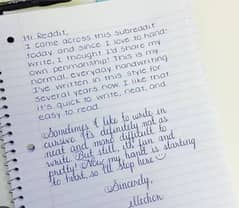 Hi, Reddit,
I came across this subreddit
today and since I love to hand-
write, I thought I'd share my
own penmanship! This is my
normal, everyday handwriting.
I've written in this style for
several years now. I like that
it's quick to write, neat, and
easy to read.
Sometimes I like to write in
cursive. It's definitely not as
neat and more difficult to
write. But still, it's fun and
pretty! Now my hand is starting
to hurt, so I'll stop here
Sincerely,